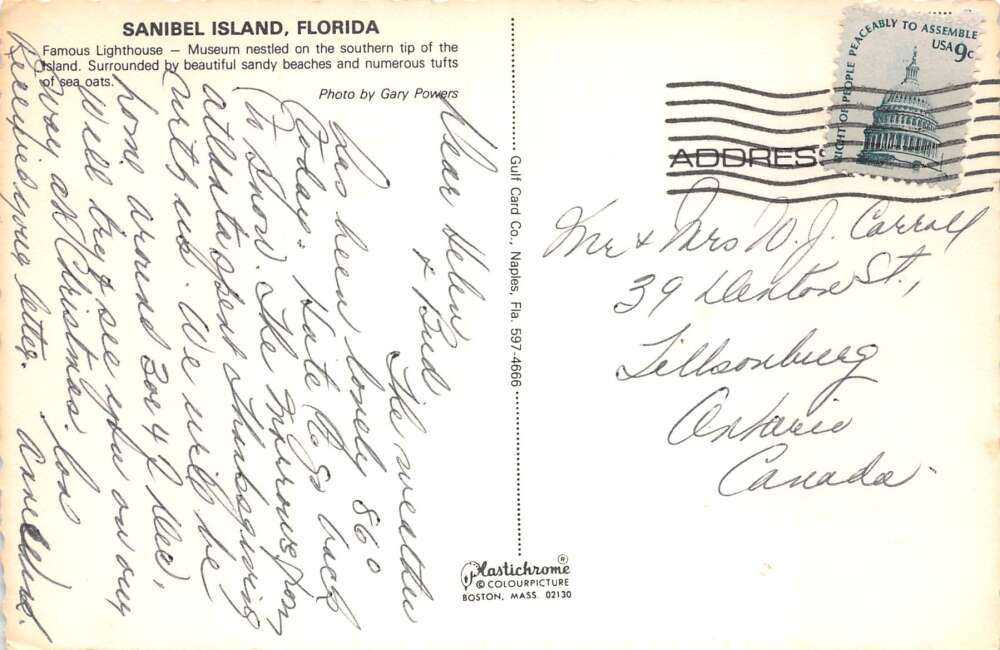 SANIBEL ISLAND, FLORIDA
Famous Lighthouse — Museum nestled on the southern tip of the
Island. Surrounded by beautiful sandy beaches and numerous tufts
of sea oats.
Photo by Gary Powers
Dear Helen
& Bud
The weather
has been lovely 86°
today - Hate to go back
to snow. The from
Atlanta spent Thanksgiving
with us. We will be
home around 3 or 4 of Dec.
Will try & see you on our
way at Christmas.
Received your letter.
Gulf Card Co., Naples, Fla. 597-4666
Plastichrome ®
© COLOURPICTURE
BOSTON, MASS. 02130
RIGHT OF PEOPLE PEACEABLY TO ASSEMBLE
USA 9c
ADDRESS
Mr & Mrs W. J. Carroll
39 Denton St.,
Tillsonburg
Ontario
Canada